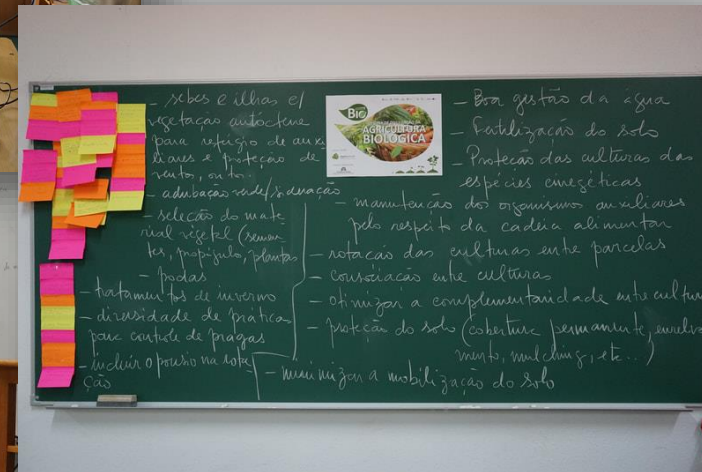 - sebes e ilhas c/
vegetação autóctene
para refúgio de auxi
liares e proteção de
vento, outro...
- adubação verde/sideração
- seleção do mate
rial vegetal (semen
tes, propágulo, plantas
- podas
- tratamentos de inverno
- diversidade de práticas
para controle de pragas
- incluir o pousio na rota
ção
Bio
AGRICULTURA
BIOLÓGICA
- Boa gestão da água
- Fertilização do solo
- Proteção das culturas das
espécies cinegéticas
- manutenção dos organismos auxiliares
pelo respeito da cadeia alimentar
- rotação das culturas entre parcelas
- consociação entre culturas
- otimizar a complementaridade entre cultur
- proteção do solo (cobertura permanente, enrelva
mento, mulching, etc...)
- minimizar a mobilização do solo